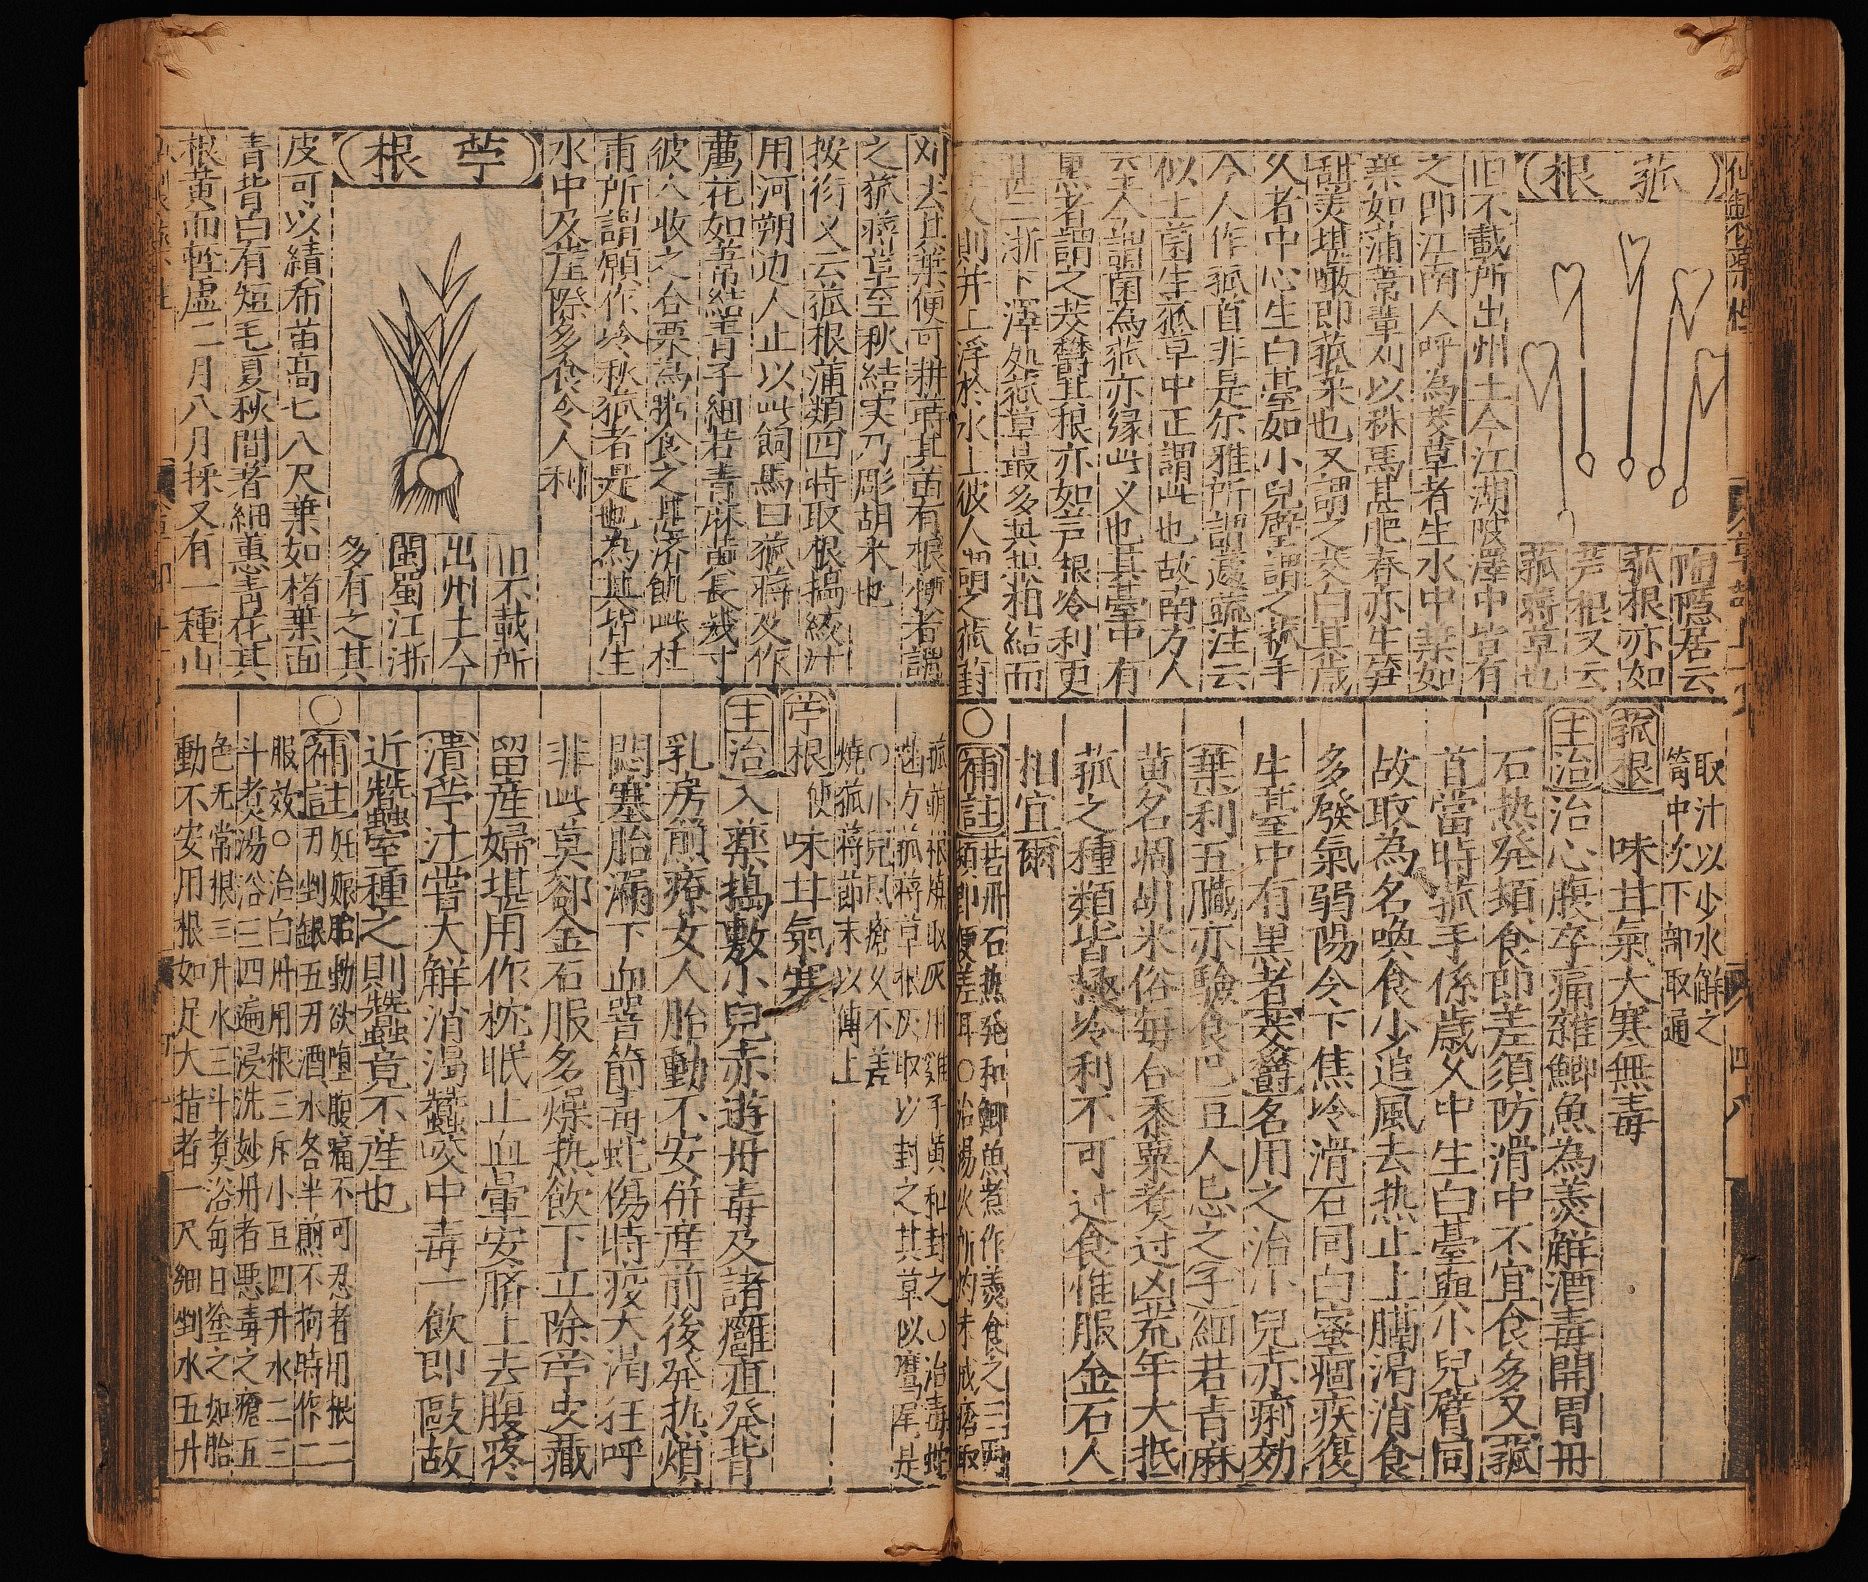 菰根
陶隱居云
菰根亦如
芦根又云
菰蔣草也
旧不載所出州土今江湖陂澤中皆有
之即江南人呼為茭草者生水中葉如
葉如蒲葦輩刈以秣馬甚肥春亦生笋
甜美堪啖即菰菜也又謂之茭白其歲
久者中心生白臺如小兒臂謂之菰手
今人作菰首非是尔雅所謂蘧蔬注云
似土菌生菰草中正謂此也故南方人
至今謂菌為菰亦緣此义也其臺中有
黑者謂之茭欝其根亦如芦根冷利更
甚二浙下澤処菰草最多其根相結而
久則并土浮於水上彼人謂之菰葑
取汁以少水解之
筒中次下部取通
菰根 味甘氣大寒無毒
主治治心腹卒痛雜鯽魚為羹解酒毒開胃丹
石热発類食即差須防滑中不宜食多又菰
首當時菰手係歲久中生白臺與小兒臂同
故取為名喚食少追風去热止上膈渴消食
多發氣弱陽令下焦冷滑石同白蜜痼疾復
生臺中有黒者茭欝名用之治小兒赤痢効
葉利五臟亦驗食巴豆人忌之子細若青麻
黄名凋胡米俗每合黍粟煮过凶荒年大抵
菰之種類皆極冷利不可过食惟服金石人
相宜爾
○補註若丹石热発和鯽魚煮作羹食之三兩
頓即便差耳○治湯火所灼未成瘡取
刈去其葉便可耕蒔其苗有梗者謂
之菰蔣草至秋結実乃彫胡米也
按衍义云菰根蒲類四時取根搗絞汁
用河朔边人止以此飼馬曰菰蔣及作
薦花如葦結青子細若青麻黄長幾寸
彼人收之合粟為粥食之甚濟飢此杜
甫所謂願作冷秋菰者是也為其皆生
水中及崖際多食令人利
苧根
旧不載所
出州土今
閩蜀江浙
多有之其
皮可以績布苗高七八尺葉如楮葉面
青背白有短毛夏秋間着細蕙青花其
根黄而輕虚二月八月採又有一種山
菰蔣根燒取灰用雞子黄和封之○治毒蛇
囓方菰蔣草根灰取以封之其草以鷹尾是
○小兒風瘡久不差
燒菰蔣節末以傅上
苧根使 味甘氣寒
主治入藥搗敷小兒赤遊丹毒及諸癰疽発背
乳房煎療女人胎動不安併産前後発热煩
悶塞胎漏下血署箭毒蛇傷時疫大渴狂呼
非此莫郤金石服多燥热飲下立除苧皮藏
留産婦堪用作枕眠止血暈安臍上去腹疼
漬苧汁嘗大解消渴蠶咬中毒一飲即敺故
近蠶室種之則蠶竟不産也
○補註妊娠胎動欲墮腹痛不可忍者用根二
刃剉銀五刃酒水各半煎不拘時作二
服效○治白丹用根三斤小豆四升水二三
斗煮湯浴三四遍浸洗妙丹者悪毒之瘡五
色无常根三升水三斗煮浴每日塗之如胎
動不安用根如足大指者一尺細剉水五升